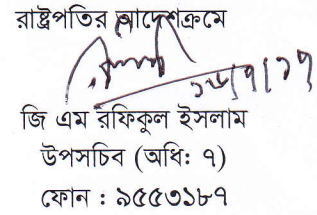 রাষ্ট্রপতির আদেশক্রমে
১৮/৭/১৭
জি এম রফিকুল ইসলাম
উপসচিব (অধি: ৭)
ফোন : ৯৫৫৩১৮৭